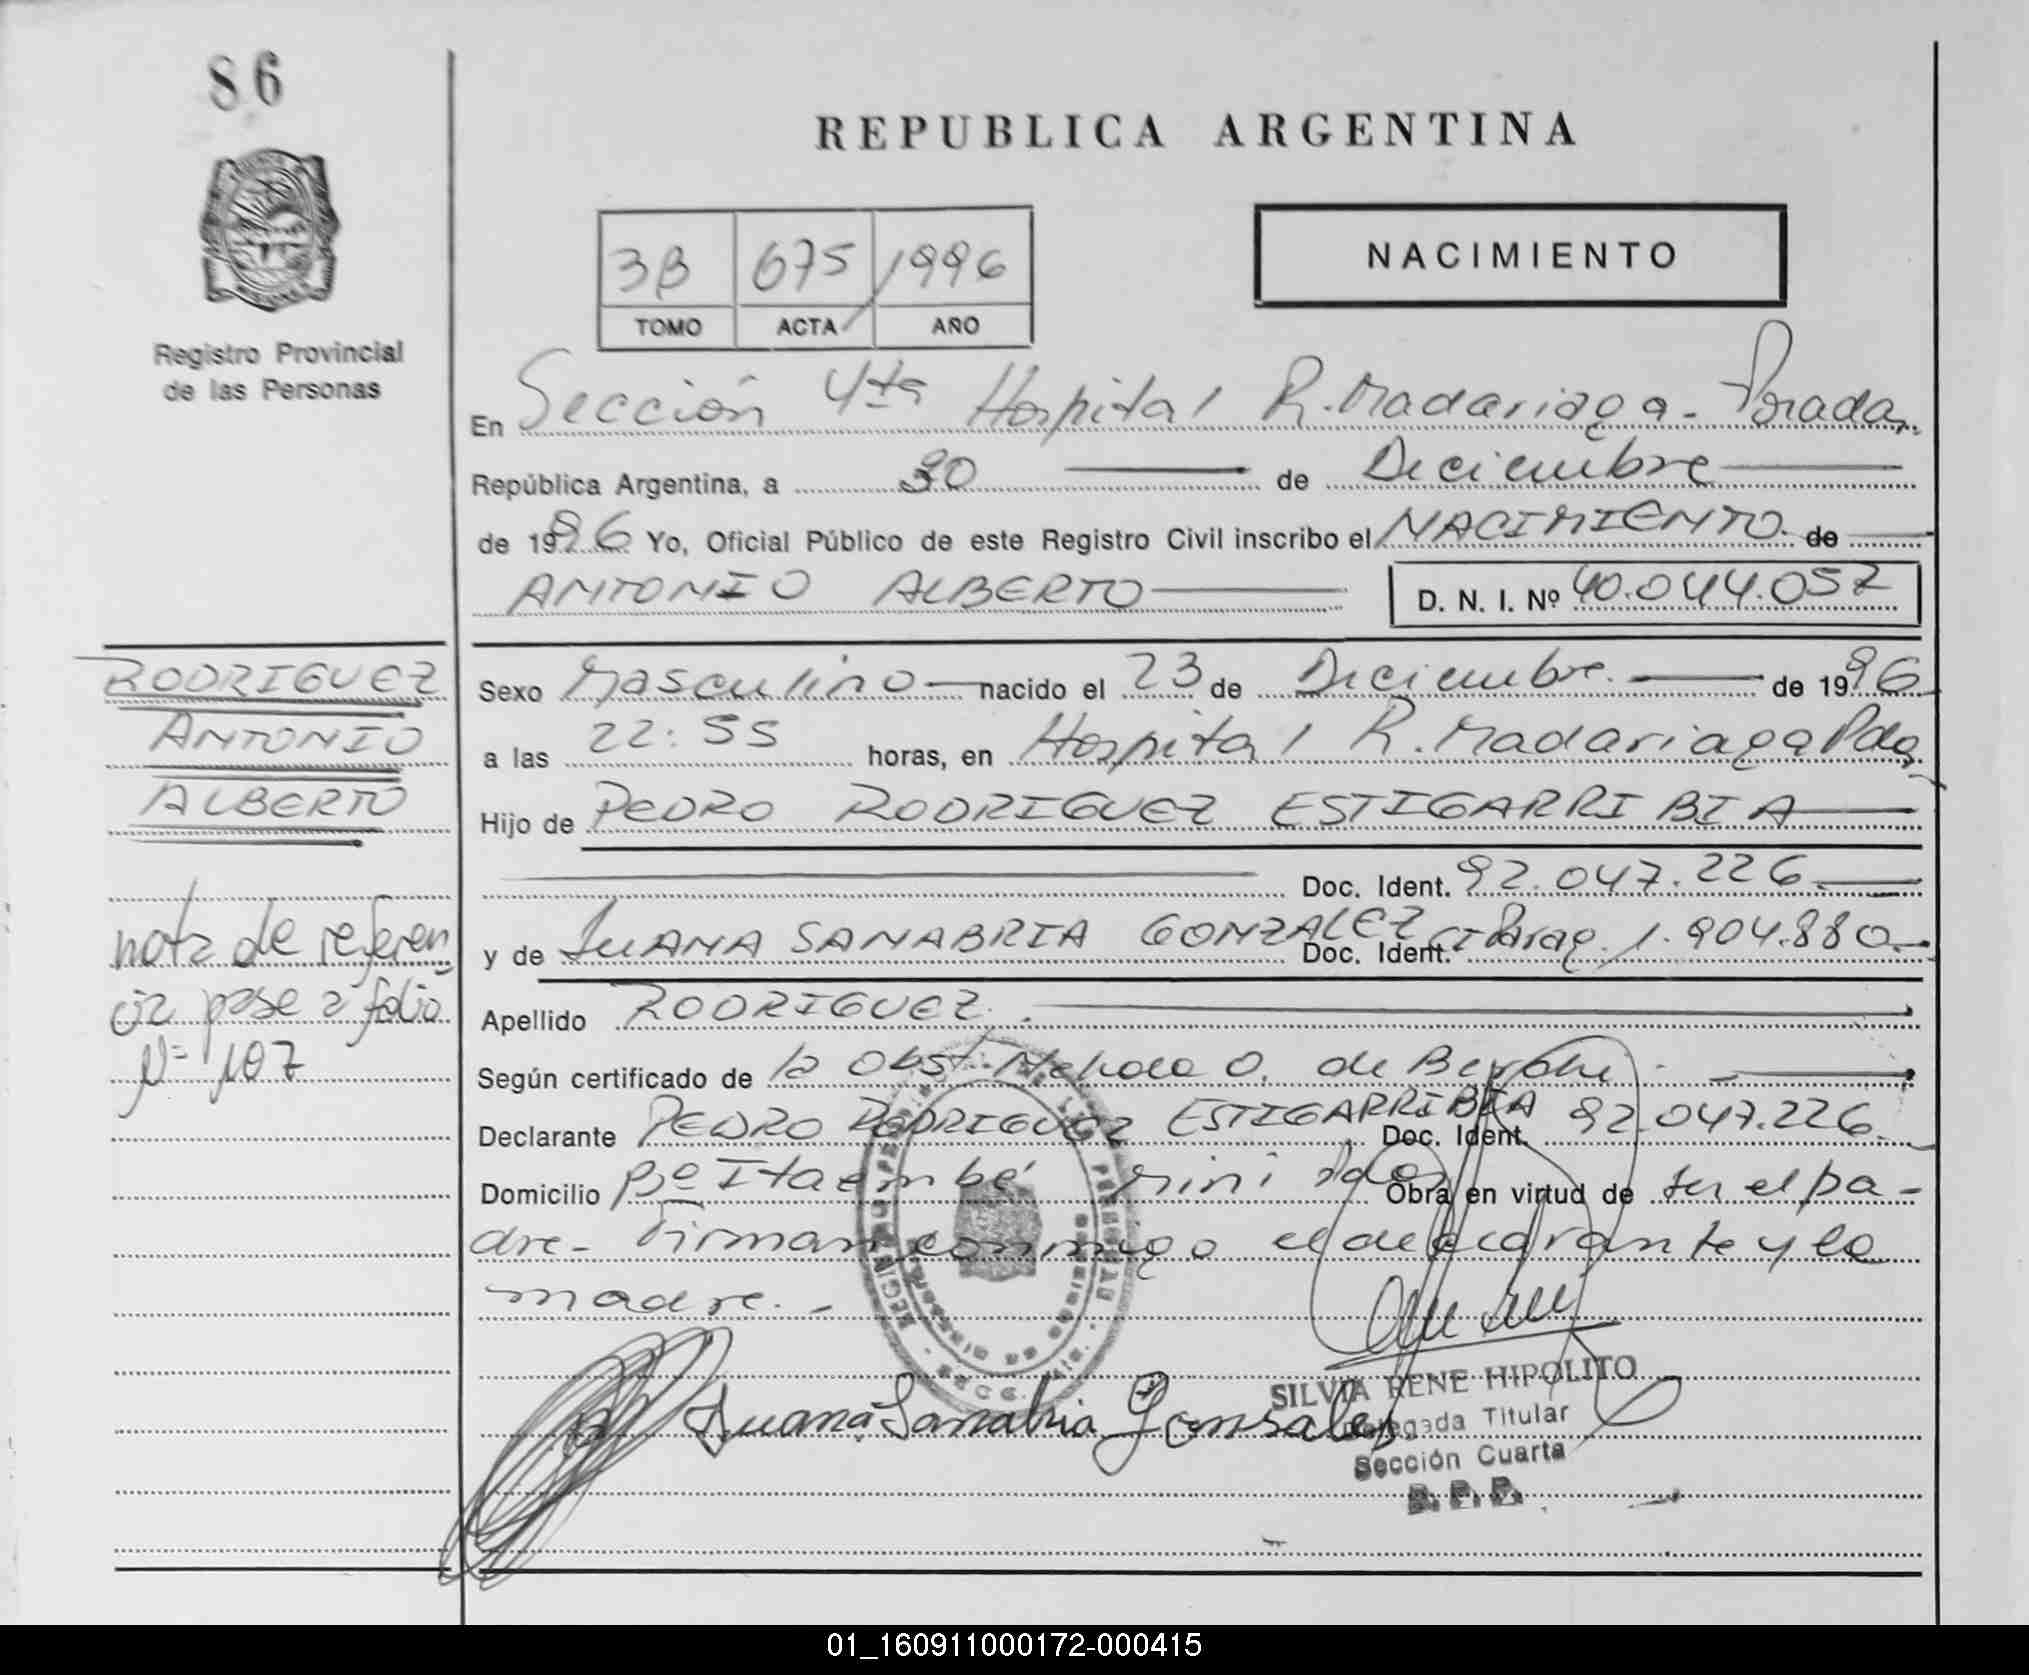 86
REPUBLICA ARGENTINA
NACIMIENTO
3B 675 1996
TOMO ACTA AÑO
Registro Provincial
de las Personas
En Sección 4ta Hospital R. Madariaga - Posadas
República Argentina, a 30 de Diciembre
de 1996 Yo, Oficial Público de este Registro Civil inscribo el NACIMIENTO de
ANTONIO ALBERTO D. N. I. Nº 40.044.057
RODRIGUEZ
ANTONIO
ALBERTO
nota de referen
cia pase a folio
Nº 107
Sexo Masculino nacido el 23 de Diciembre. de 1996
a las 22:55 horas, en Hospital R. Madariaga Pdas
Hijo de PEDRO RODRIGUEZ ESTIGARRIBIA
Doc. Ident. 92.047.226
y de JUANA SANABRIA GONZALEZ Doc. Ident. CI Parag. 1.904.880.-
Apellido RODRIGUEZ.
Según certificado de la Obst. O. de
Declarante PEDRO RODRIGUEZ ESTIGARRIBIA Doc. Ident. 92.047.226
Domicilio Bº Itaembé Miní Pdas Obra en virtud de ser el pa-
dre- Firman conmigo el declarante y la
madre.-
Juana Sanabria Gonsales
SILVIA RENE HIPOLITO
Delegada Titular
Sección Cuarta
R. P. P.
01_160911000172-000415